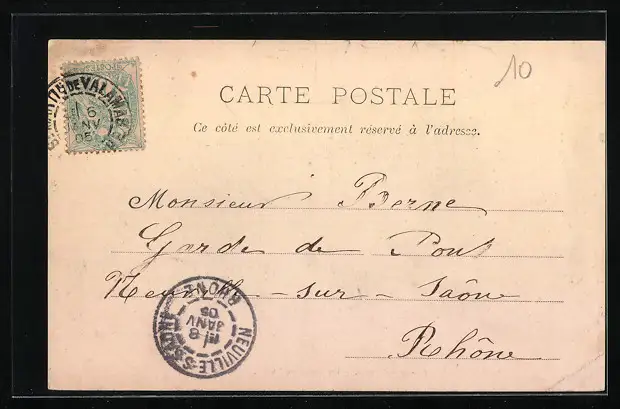 10
CARTE POSTALE
Ce côté est exclusivement réservé à l'adresse.
DE VALAMAS
6
05
Monsieur Berne
Garde de Pont
Neuville-sur-Saône
Rhône
NEUVILLE-S-SAÔNE
8
JANV
05
RHONE